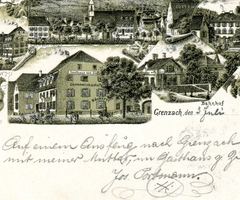 Bahnhof
Grenzach, den 3 Juli
Auf einem Ausflug nach Grenzach
mit meiner Mutter, im Gasthaus z.
Jos Portmann.